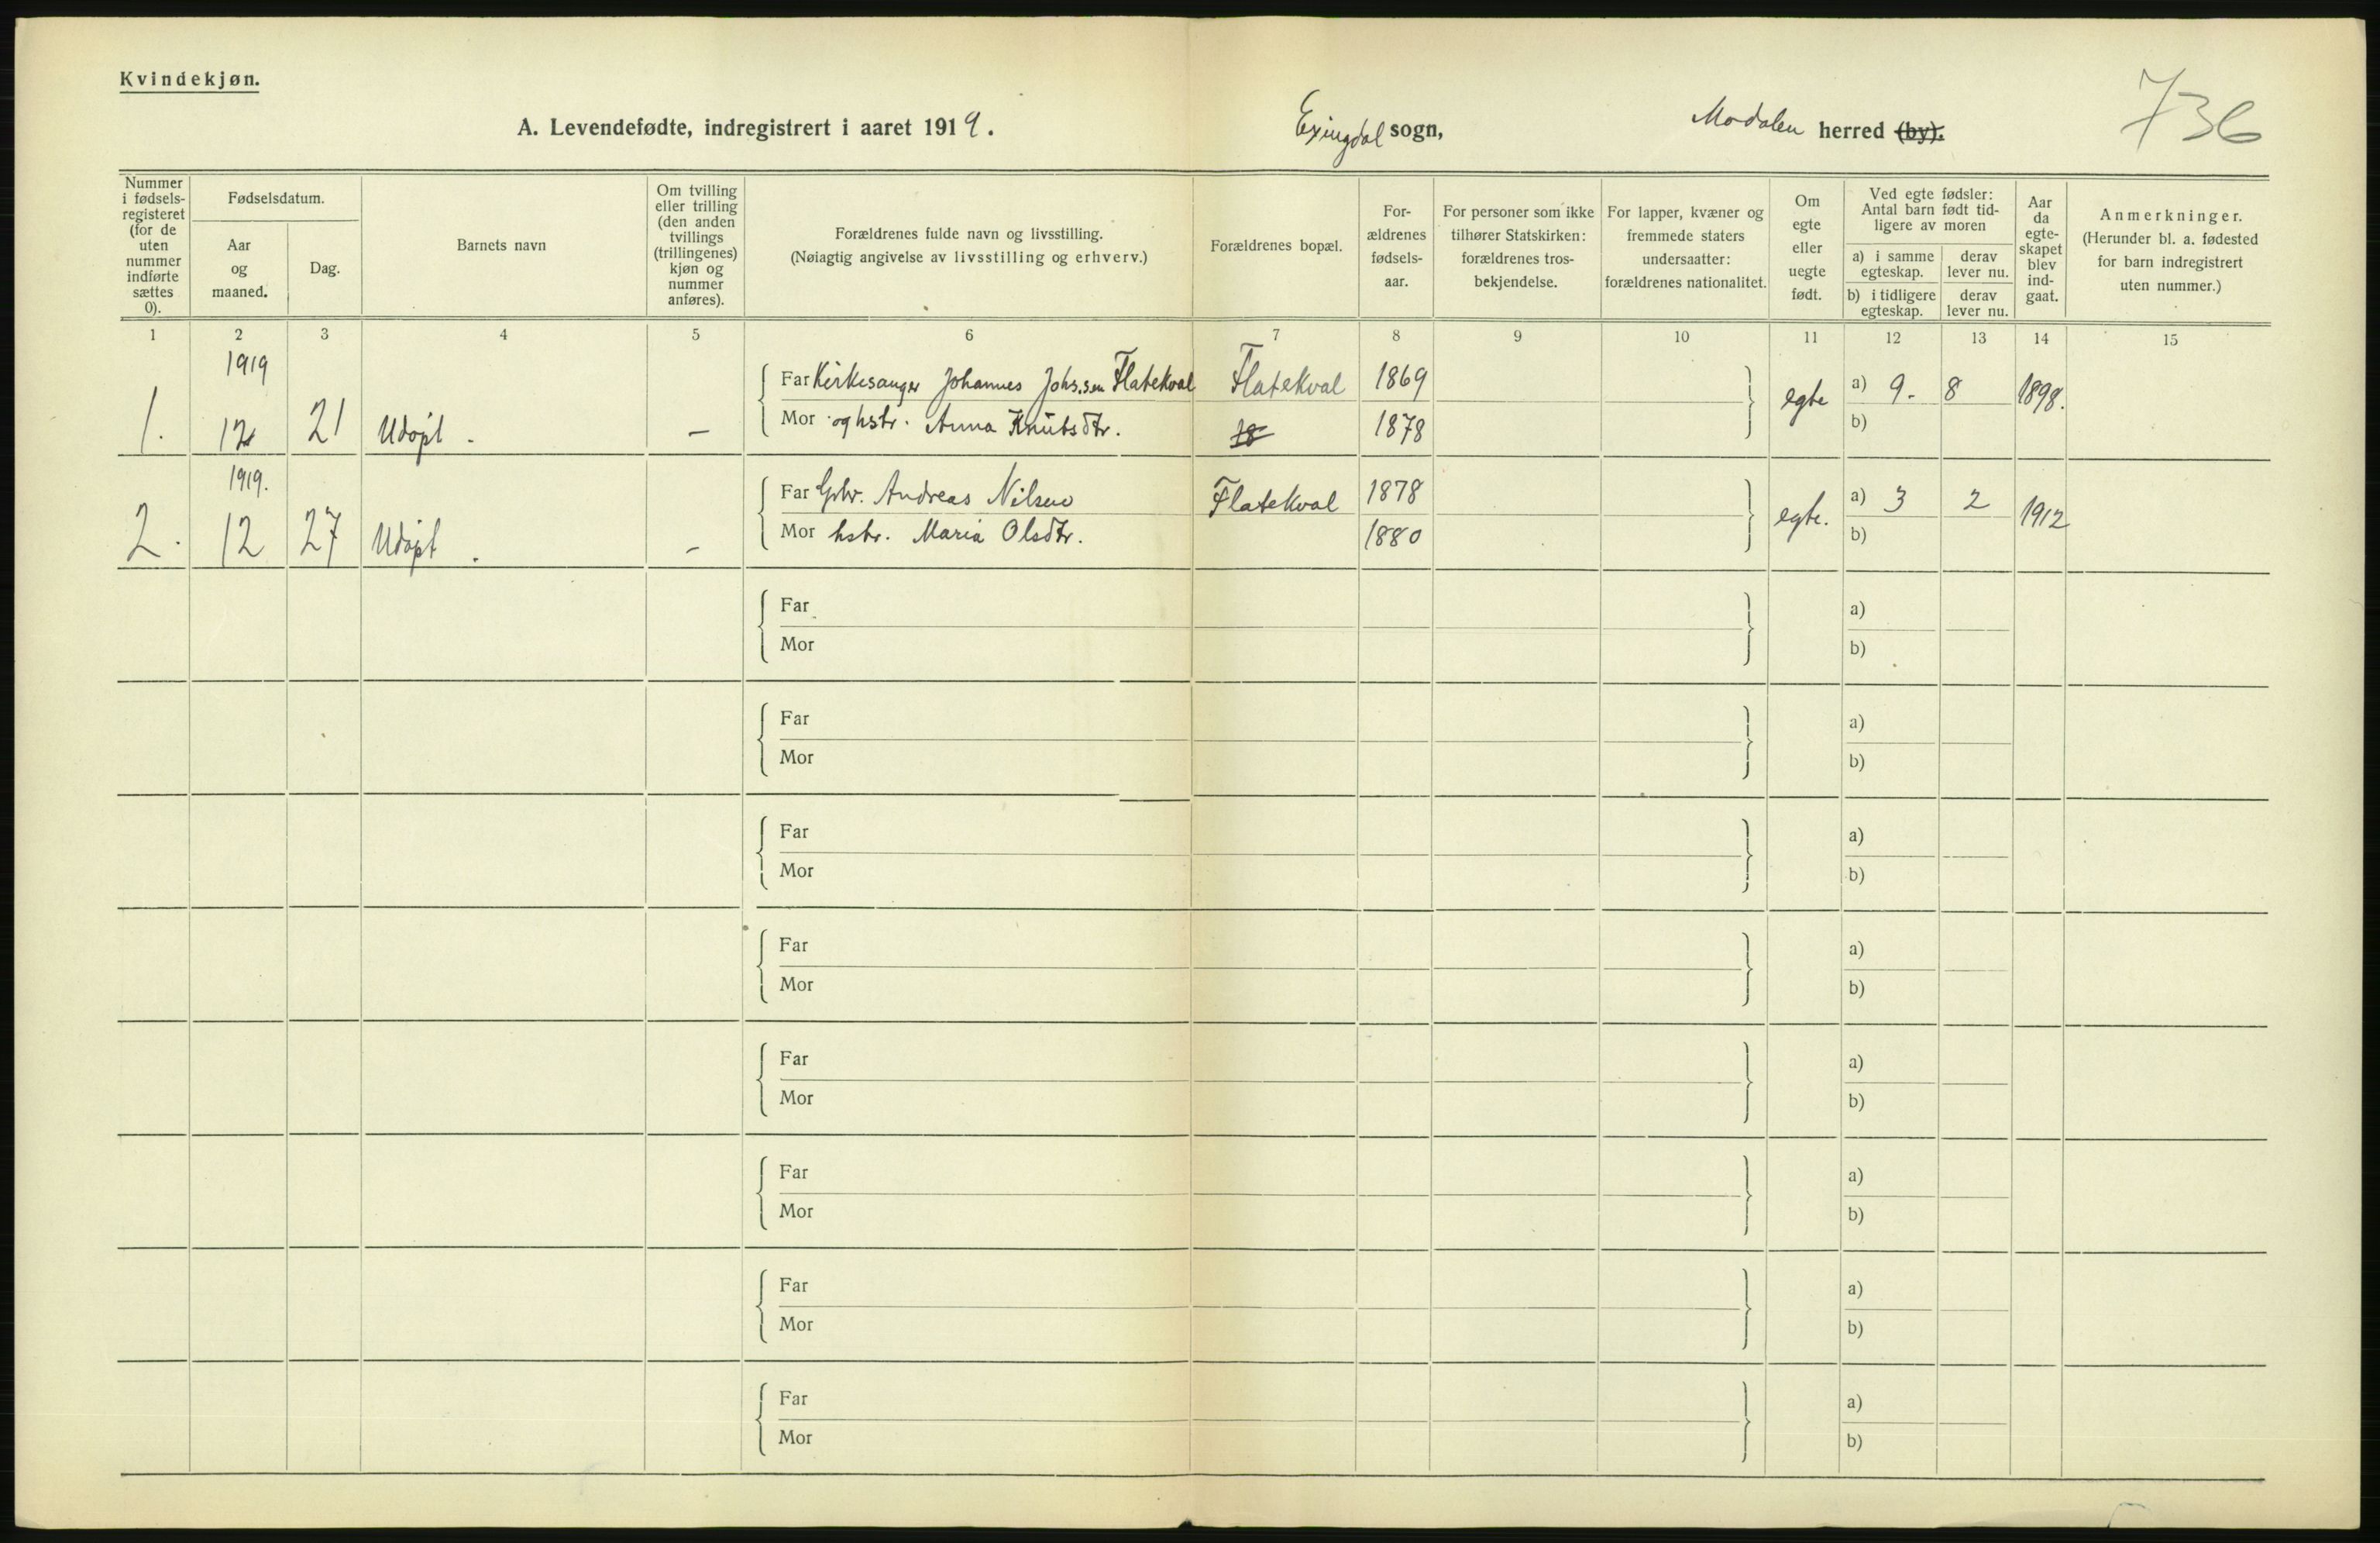 Kvindekjøn.
A. Levendefødte, indregistrert i aaret 1919. Exingdal sogn, Modalen herred (by). 736
Nummer i fødselsregisteret (for de uten nummer indførte sættes 0).
Fødselsdatum.
Aar og maaned.
Dag.
Barnets navn
Om tvilling eller trilling (den anden tvillings (trillingenes) kjøn og nummer anføres).
Forældrenes fulde navn og livsstilling.
(Nøiagtig angivelse av livsstilling og erhverv.)
Forældrenes bopæl.
Forældrenes fødselsaar.
For personer som ikke tilhører Statskirken: forældrenes trosbekjendelse.
For lapper, kvæner og fremmede staters undersaatter: forældrenes nationalitet.
Om egte eller uegte født.
Ved egte fødsler: Antal barn født tidligere av moren
a) i samme egteskap. derav lever nu.
b) i tidligere egteskap. derav lever nu.
Aar da egteskapet blev indgaat.
Anmerkninger.
(Herunder bl. a. fødested for barn indregistrert uten nummer.)
1 2 3 4 5 6 7 8 9 10 11 12 13 14 15
1919
Far Kirkesanger Johannes Johs.sen Flatekval Flatekval 1869 egte a) 9. 8 1898.
1. 12 21 Udøpt. – Mor og hstr. Anna Knutsdtr. 1878 b)
1919.
Far Gbr. Andreas Nilsen Flatekval 1878 egte. a) 3 2 1912
2. 12 27 Udøpt. – Mor hstr. Maria Olsdtr. 1880 b)
Far a)
Mor b)
Far a)
Mor b)
Far a)
Mor b)
Far a)
Mor b)
Far a)
Mor b)
Far a)
Mor b)
Far a)
Mor b)
Far a)
Mor b)